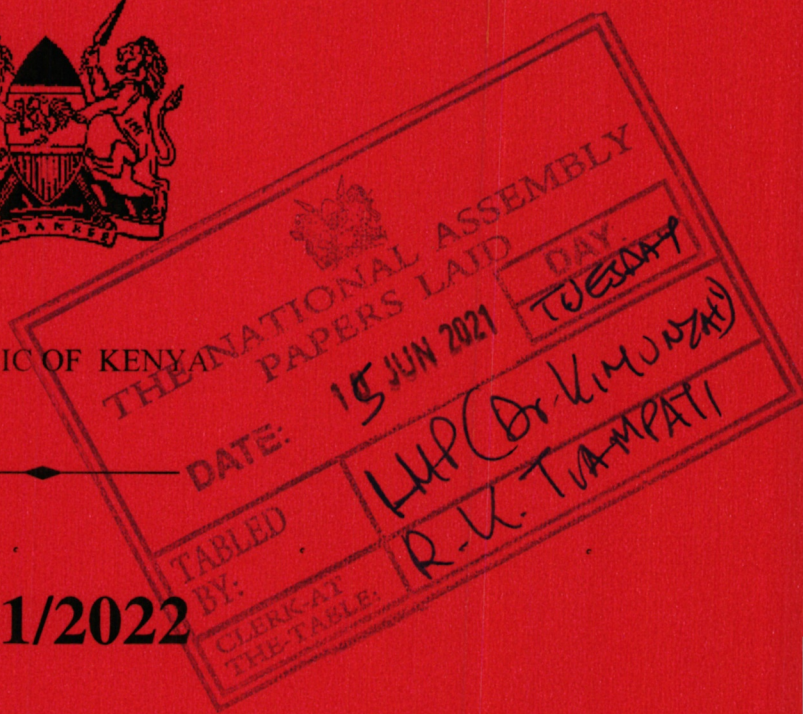 HARAMBEE
IC OF KENYA
1/2022
THE NATIONAL ASSEMBLY
PAPERS LAID
DATE: 15 JUN 2021
DAY
TUESDAY
TABLED BY:
LMP (Dr. KIMUNZA)
CLERK-AT
THE-TABLE:
R.K. TIAMPATI